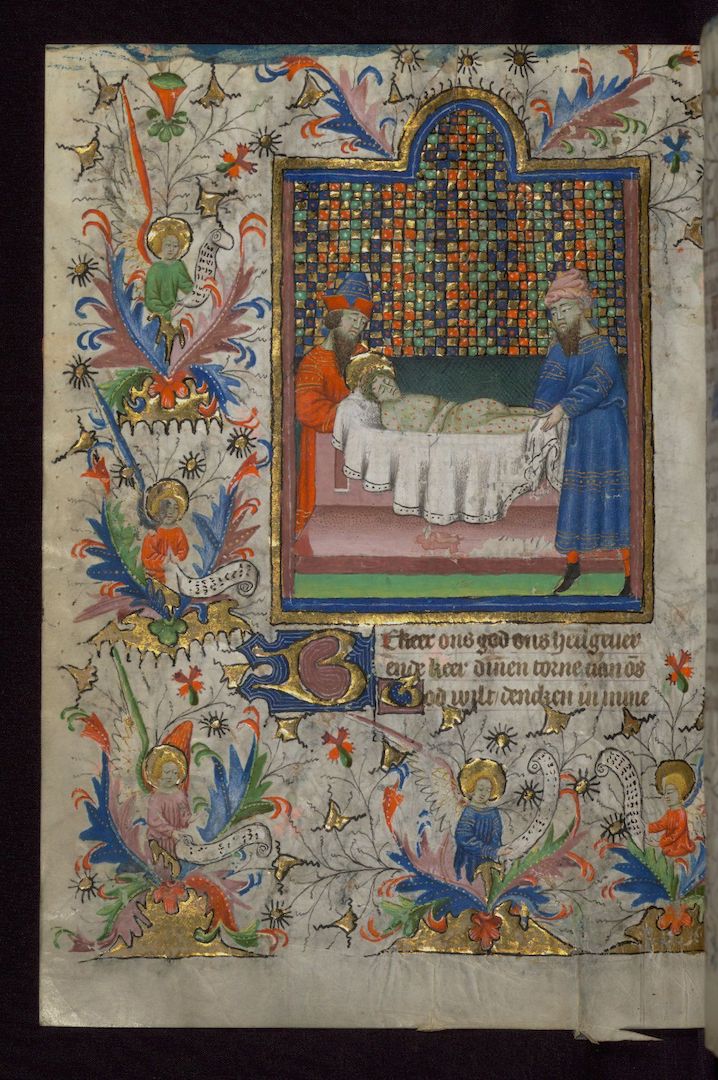 Bekeer ons god ons heilgeuer
ende keer dinen torne uan ōs
God wilt dencken in mine